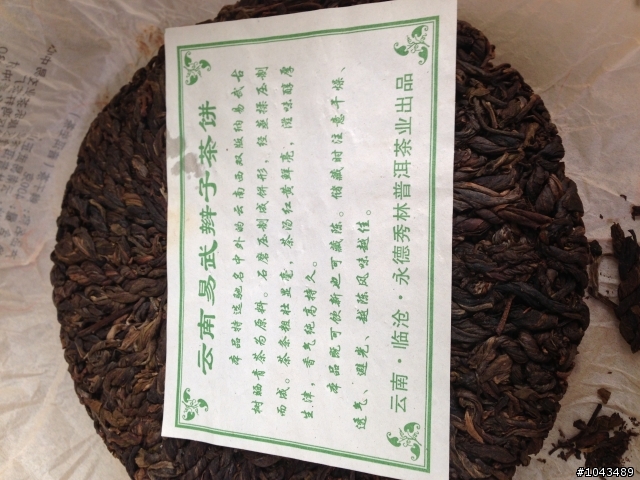 云南易武辫子茶饼
本品特选驰名中外的云南西双版纳易武古
树晒青茶为原料。石磨压制成饼形，经蒸揉压制
而成。茶条粗壮显毫，茶汤红黄鲜亮，滋味醇厚
生津，香气纯高持久。
本品既可饮新也可藏陈。储藏时注意干燥、
透气、避光、越陈风味越佳。
云南·临沧·永德秀林普洱茶业出品
#1043489